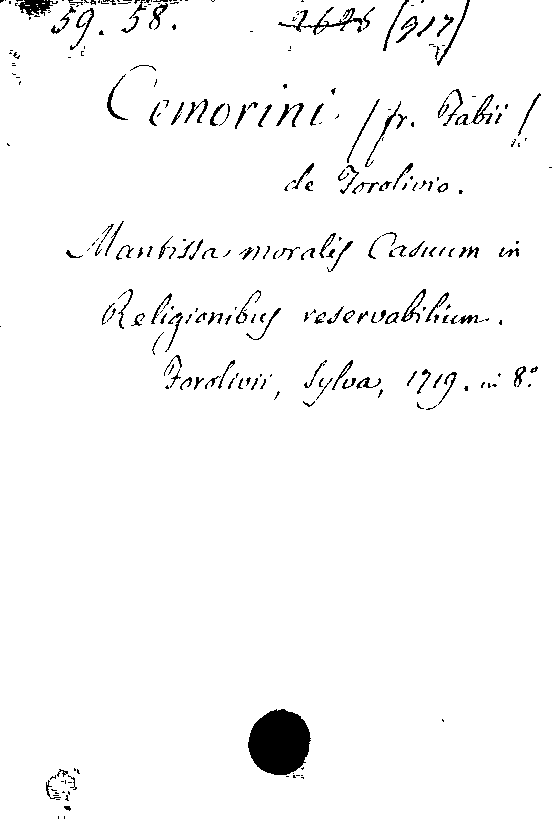 59. 58. 2625 (917)
Cemorini /fr. Fabii/
de Forolivio.
Mantissa moralis Casuum in
Religionibus reservabilium.
Forolivii, Sylva, 1719. in 8.º